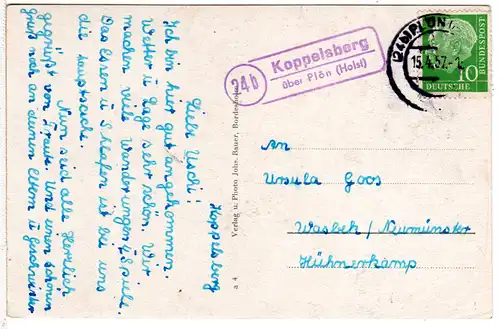 Koppelsberg
Liebe Uschi!
Ich bin hier gut angekommen.
Wetter u. Lage sehr schön. Wir
machen viele Wanderungen u. Spiele.
Das Essen u. Schlafen ist bei uns
die Hauptsache.
Nun seid alle herzlich
gegrüsst von Traute. Und einen schönen
Gruß noch an deinen Eltern u. Geschwister
Verlag u. Photo Johs. Bauer, Bordesholm
a 4
24b
Koppelsberg
über Plön (Holst)
(24b) PLÖN
15.4.57
10
DEUTSCHE
BUNDESPOST
An
Ursula Goos
Wasbek/Neumünster
Hühnerkamp